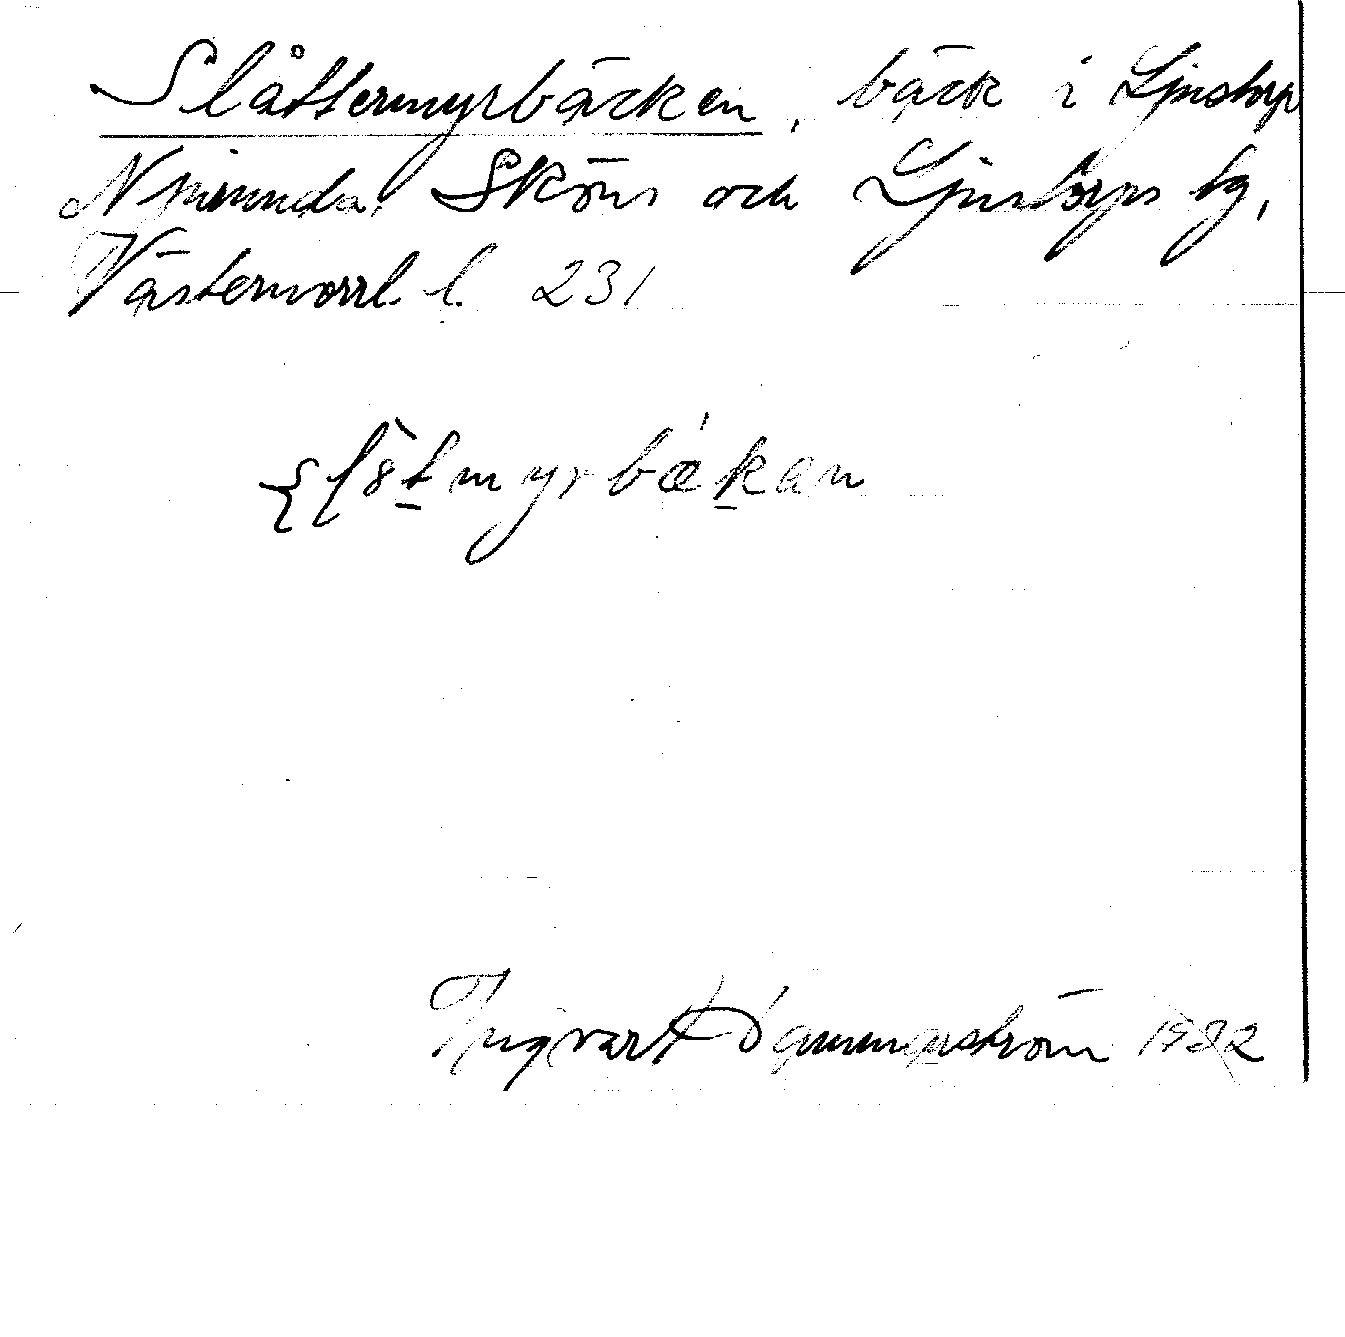 Slåttermyrbäcken, bäck i Ljustorp
Njurunda, Sköns och Ljustorps tg,
Västernorrl. l. 231
myrbækan
Ingvar Hammarström 1982